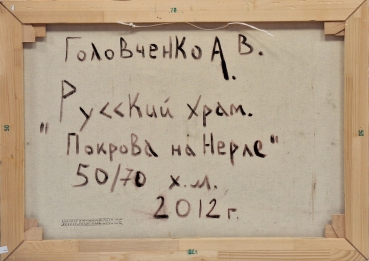 Головченко А. В.
Русский храм.
"Покрова на Нерле"
50/70 х.м.
2012 г.